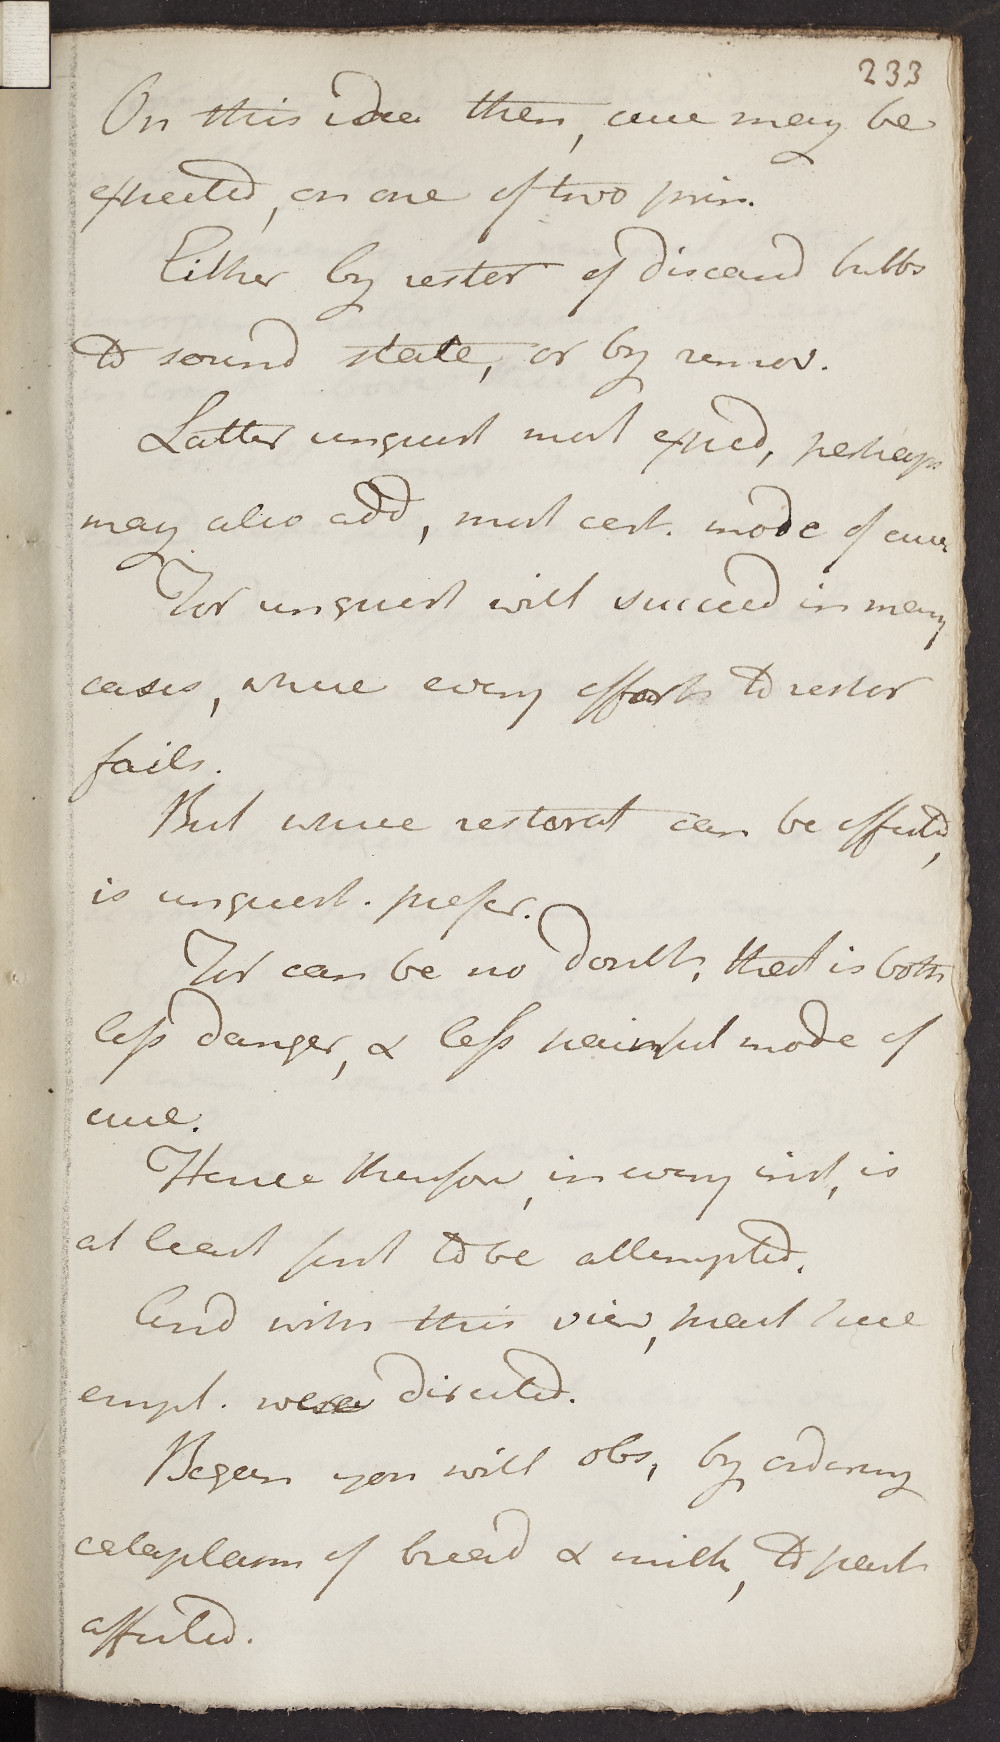 233
On this idea then, cure may be
expected, on one of two prin.
Either by restor of diseased bulbs
to sound state, or by remov.
Latter unquest most exped, perhaps
may also add, most cert. mode of cure
For unquest will succeed in many
cases, where every effort to restor
fails.
But where restorat can be effected,
is unquest. prefer.
For can be no doubt, that is both
less danger, & less painful mode of
cure.
Hence therefore, in every inst, is
at least first to be attempted.
And with this view, pract here
empl. were directed.
Began you will obs, by ordering
cataplasm of bread & milk, to part
affected.